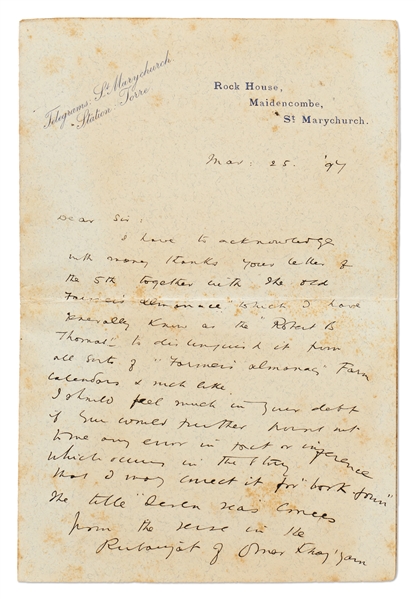 Telegrams: St Marychurch
Station Torre
Rock House,
Maidencombe,
St Marychurch.
Mar. 25. '97
Dear Sir:
I have to acknowledge
with many thanks your letter of
the 5th together with the old
Farmer's almanac" which I have
generally known as the "Robert B
Thomas" to distinguish it from
all sorts of "Farmer's almanacs" Farm
calendars & such like.
I should feel much in your debt
if you would further point out
to me any error in fact or inference
which occurs in the story
that I may correct it for "book form"
The title "Seven Seas" comes
from the verse in the
Rubaiyat of Omar Khayyam